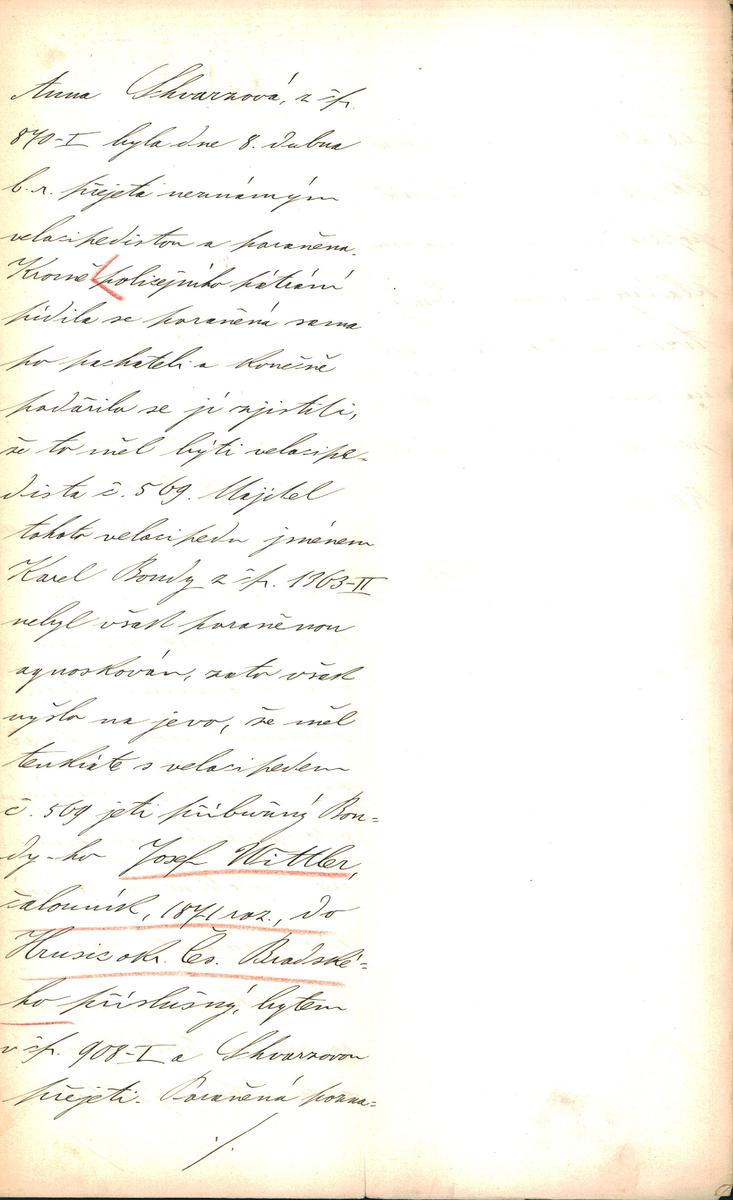 Anna Schvarzová, z čp.
870-I byla dne 8. dubna
b.r. přejeta neznámým
velocipedistou a poraněna.
Kromě policejního pátrání
pídila se poraněná sama
po pachateli a konečně
podařilo se jí zjistiti,
že to měl býti velocipe-
dista č. 569. Majitel
tohoto velocipedu jménem
Karel Bondy z čp. 1963-II
nebyl však poraněnou
agnoskován, zato však
vyšlo na jevo, že měl
tenkráte s velocipedem
č. 569 jeti příbuzný Bon=
dy-ho Josef Wittler,
čalouník, 1871 roz., do
Hrusic okr. Čes. Brodské=
ho příslušný, bytem
v čp. 908-I a Schvarzovou
přejeti. Poraněná pozna=
./.